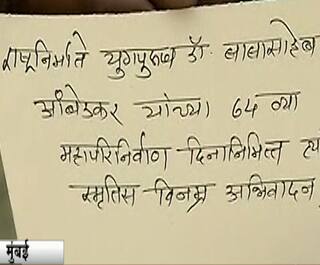 राष्ट्रनिर्माते युगपुरुष डॉ. बाबासाहेब
आंबेडकर यांच्या 64 व्या
महापरिनिर्वाण दिनानिमित्त त्यां
स्मृतिस विनम्र अभिवादन
मुंबई